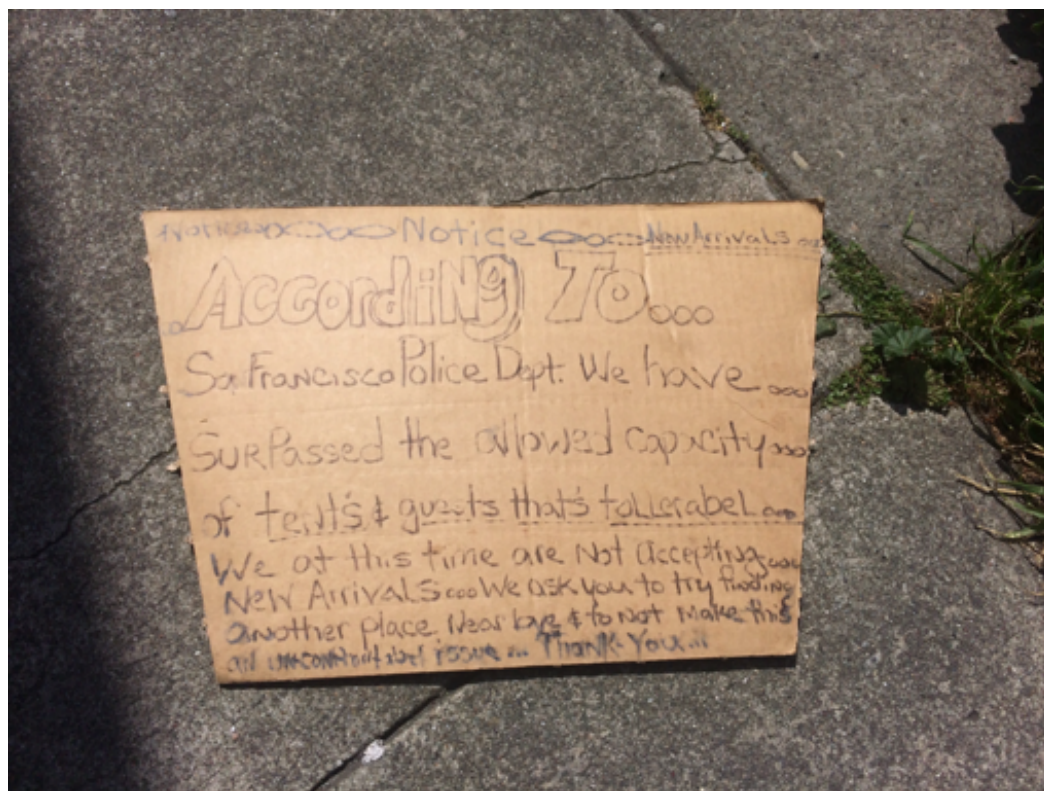 Notice New Arrivals...
According To...
San Francisco Police Dept. We have...
SURPassed the allowed capacity...
of tent's & guests that's tollerabel...
We at this time are Not Accepting...
New Arrivals... We ask you to try finding
another place Near &to Not make this
an issue... Thank You...